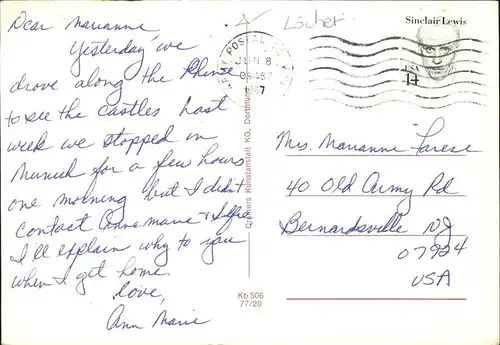 Dear Marianne
Yesterday we
drove along the Rhine
to see the castles Last
week we stopped in
Munich for a few hours
one morning but I didn't
contact Anne marie &
I'll explain why to you
when I get home.
Love,
Ann Marie
Cramers Kunstanstalt KG, Dortmund
Kb 506
77/20
Löchet
POSTAL
JUN 8
Sinclair Lewis
USA
14
Mrs. Marianne Farese
40 Old Army Rd
Bernardsville NJ
07924
USA